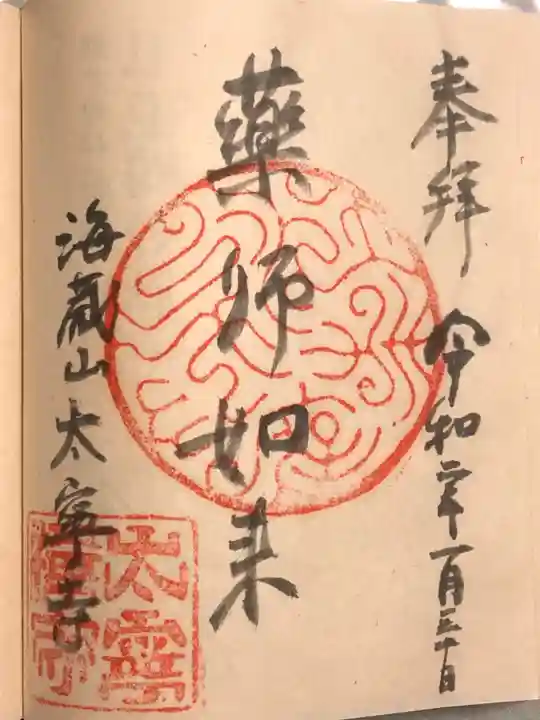 奉拝 令和二年一月三十日
薬師如来
海蔵山太寧寺